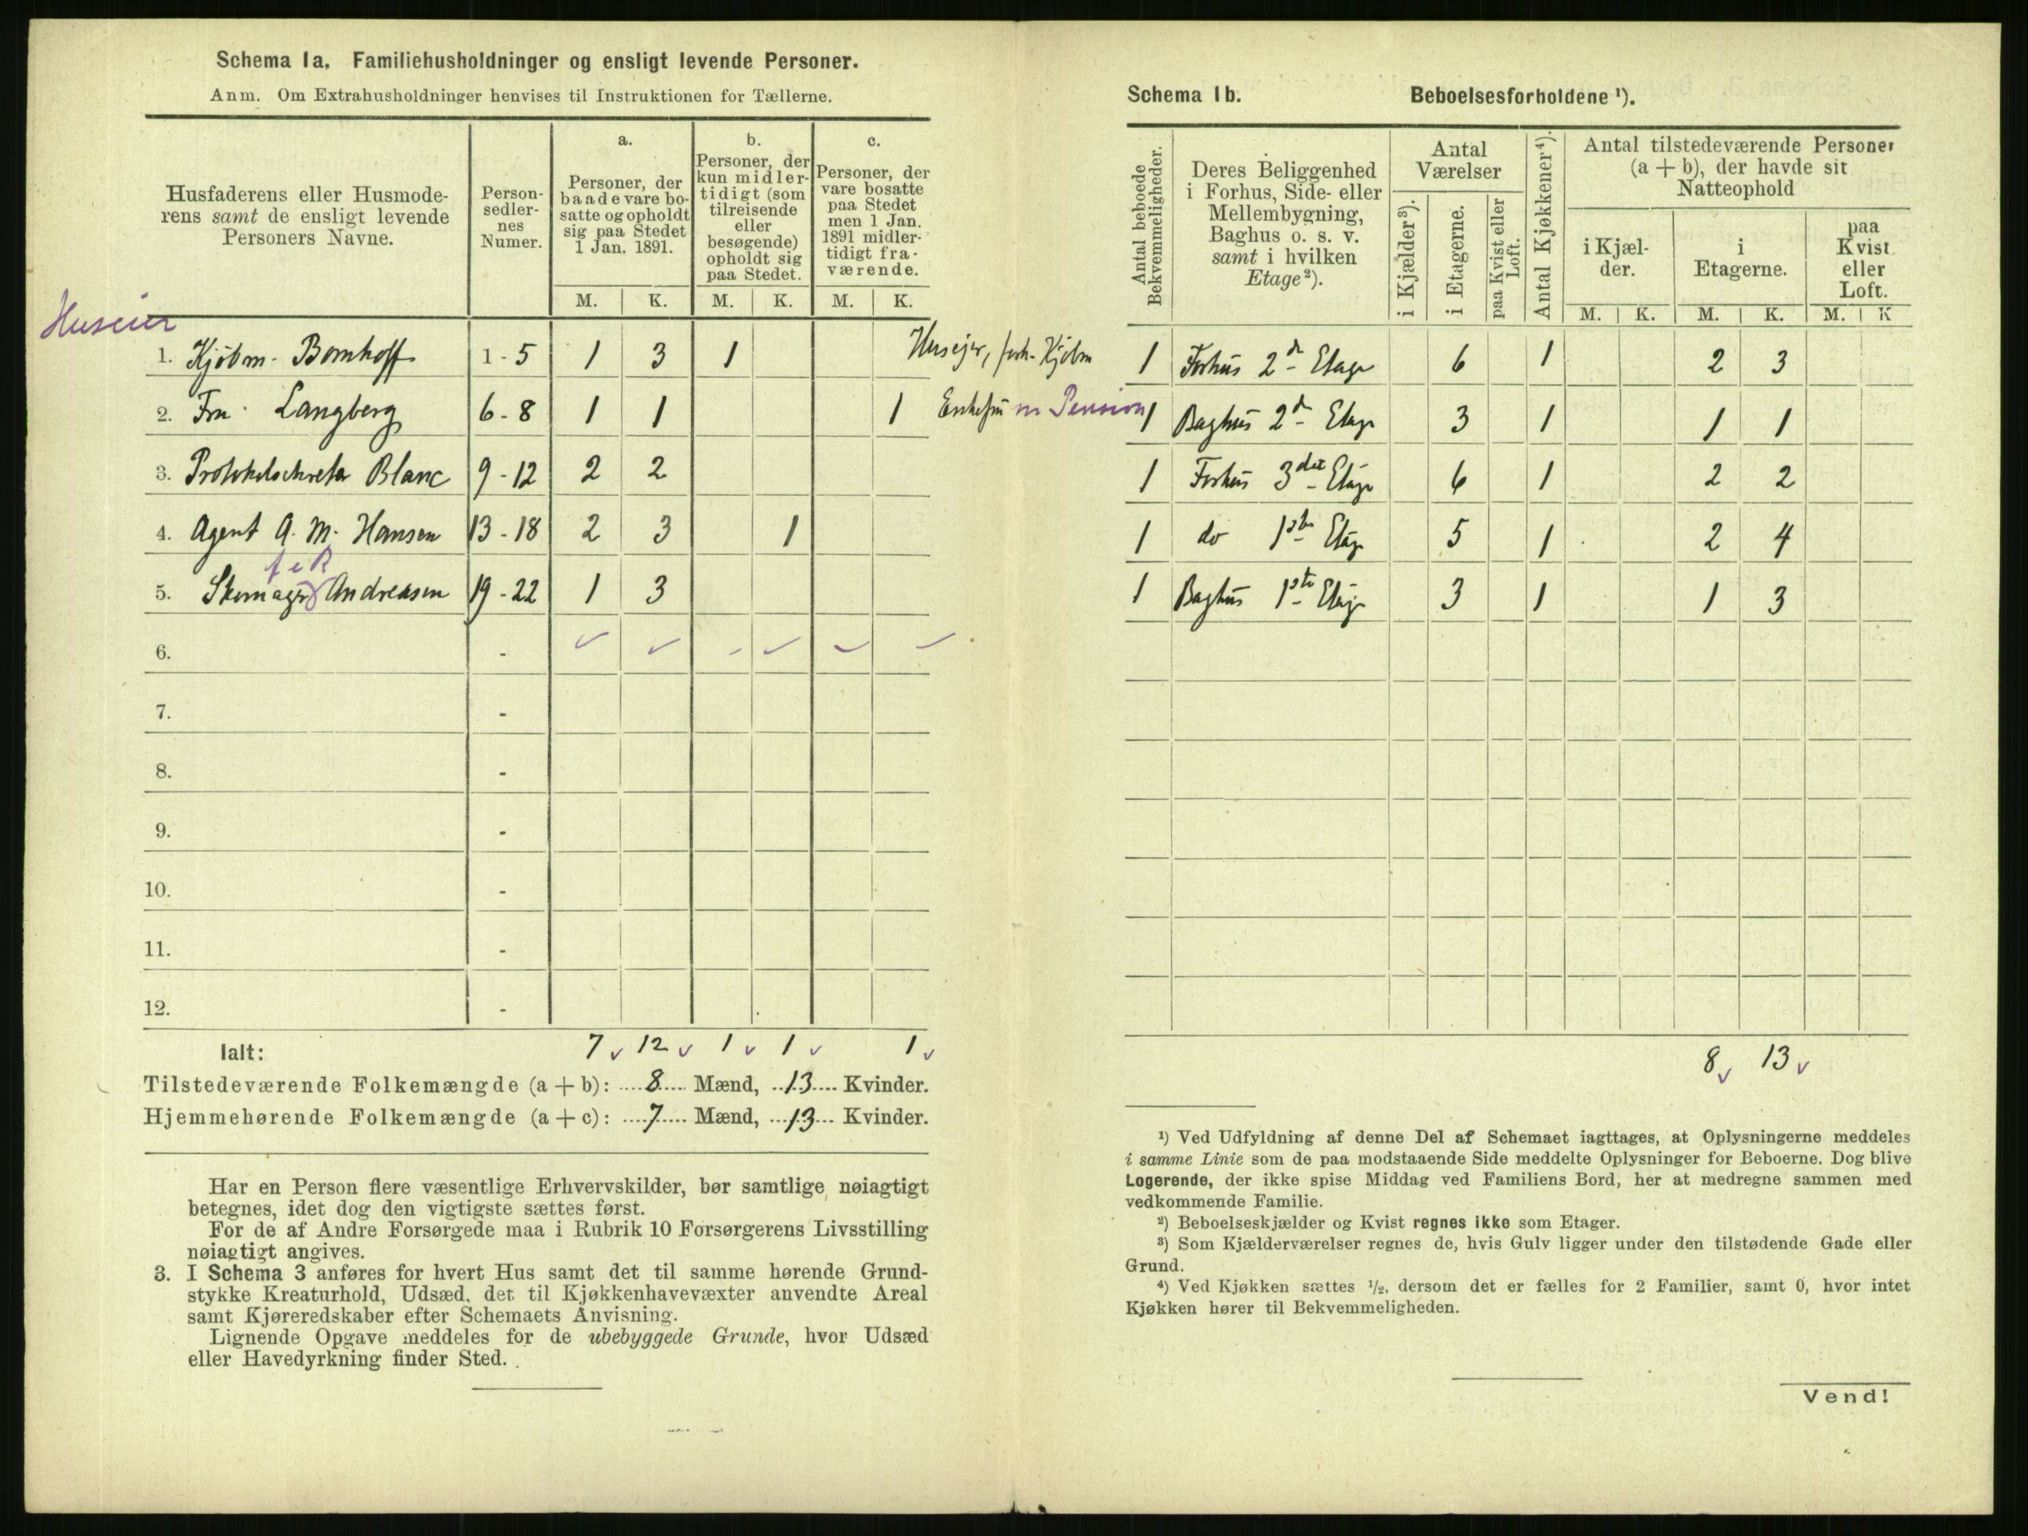 Schema 1a. Familiehusholdninger og ensligt levende Personer.
Anm. Om Extrahusholdninger henvises til Instruktionen for Tællerne.
Husfaderens eller Husmode-
rens samt de ensligt levende
Personers Navne.
Person-
sedler-
nes
Numer.
a.
Personer, der
baade vare bo-
satte og opholdt
sig paa Stedet
1 Jan. 1891.
b.
Personer, der
kun midler-
tidigt (som
tilreisende
eller
besøgende)
opholdt sig
paa Stedet.
c.
Personer, der
vare bosatte
paa Stedet
men 1 Jan.
1891 midler-
tidigt fra-
værende.
M. K. M. K. M. K.
Huseier
1. Kjøbm. Bomhoff 1 - 5 1 3 1 Huseier, forh. Kjøbm
2. Fru Langberg 6 - 8 1 1 1 Enkefru m Pension
3. Protokolsekretær Blanc 9 - 12 2 2
4. Agent A. M. Hansen 13 - 18 2 3 1
5. Skomager Andreasen 19 - 22 1 3
6. -
7. -
8. -
9. -
10. -
11. -
12. -
Ialt: 7 12 1 1 1
Tilstedeværende Folkemængde (a + b): 8 Mænd, 13 Kvinder.
Hjemmehørende Folkemængde (a + c): 7 Mænd, 13 Kvinder.
Har en Person flere væsentlige Erhvervskilder, bør samtlige nøiagtigt
betegnes, idet dog den vigtigste sættes først.
For de af Andre Forsørgede maa i Rubrik 10 Forsørgerens Livsstilling
nøiagtigt angives.
3. I Schema 3 anføres for hvert Hus samt det til samme hørende Grund-
stykke Kreaturhold, Udsæd, det til Kjøkkenhavevæxter anvendte Areal
samt Kjøreredskaber efter Schemaets Anvisning.
Lignende Opgave meddeles for de ubebyggede Grunde, hvor Udsæd
eller Havedyrkning finder Sted.
Schema 1b. Beboelsesforholdene ¹).
Antal beboede
Bekvemmeligheder.
Deres Beliggenhed
i Forhus, Side- eller
Mellembygning,
Baghus o. s. v.
samt i hvilken
Etage²).
Antal
Værelser
i Kjælder³).
i Etagerne.
paa Kvist eller
Loft.
Antal Kjøkkener⁴).
Antal tilstedeværende Personer
(a + b), der havde sit
Natteophold
i Kjæl-
der.
i
Etagerne.
paa
Kvist
eller
Loft.
M. K. M. K. M. K
1 Forhus 2d Etage 6 1 2 3
1 Baghus 2d Etage 3 1 1 1
1 Forhus 3det Etage 6 1 2 2
1 do 1ste Etage 5 1 2 4
1 Baghus 1ste Etage 3 1 1 3
8 13
¹) Ved Udfyldning af denne Del af Schemaet iagttages, at Oplysningerne meddeles
i samme Linie som de paa modstaaende Side meddelte Oplysninger for Beboerne. Dog blive
Logerende, der ikke spise Middag ved Familiens Bord, her at medregne sammen med
vedkommende Familie.
²) Beboelseskjælder og Kvist regnes ikke som Etager.
³) Som Kjælderværelser regnes de, hvis Gulv ligger under den tilstødende Gade eller
Grund.
⁴) Ved Kjøkken sættes ½, dersom det er fælles for 2 Familier, samt 0, hvor intet
Kjøkken hører til Bekvemmeligheden.
Vend!